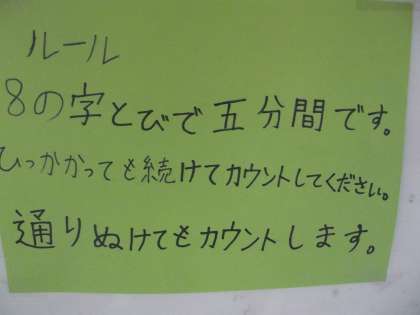 ルール
8の字とびで五分間です。
ひっかかっても続けてカウントしてください。
通りぬけてもカウントします。